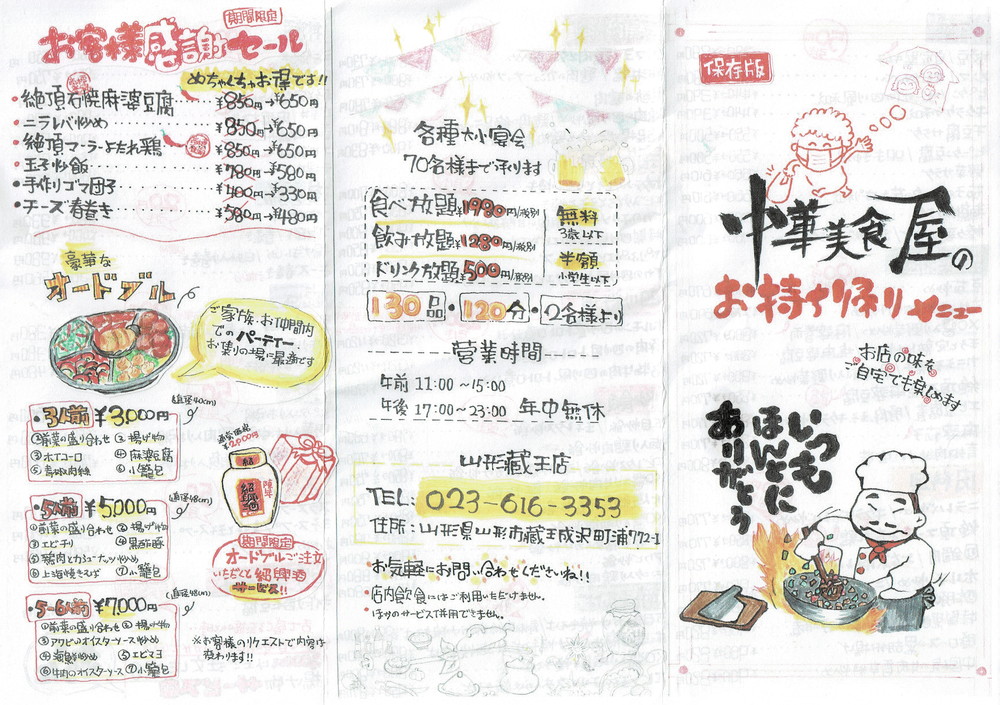 期間限定
お客様感謝セール
めちゃくちゃお得です!!
・絶頂石焼麻婆豆腐……¥850円→¥650円
・ニラレバ炒め……¥850円→¥650円
・絶頂マーラーよだれ鶏……¥850円→¥650円
・玉子炒飯……¥780円→¥580円
・手作りゴマ団子……¥400円→¥330円
・チーズ春巻き……¥580円→¥480円
豪華な
オードブル
ご家族、お仲間内
でのパーティー
お集りの場に最適です
・3人前 ¥3,000円
(直径40cm)
①前菜の盛り合わせ ②揚げ物
③ホイコーロ ④麻婆豆腐
⑤青椒肉絲 ⑥小籠包
通常価格
¥2,000円
・5人前 ¥5,000円
(直径48cm)
①前菜の盛り合わせ ②揚げ物
③エビチリ ④黒酢豚
⑤鶏肉とカシューナッツ炒め
⑥上海焼きそば ⑦小籠包
期間限定
オードブルご注文
いただくと紹興酒
サービス!!
・5-6人前 ¥7,000円
(直径48cm)
①前菜の盛り合わせ ②揚げ物
③アワビのオイスターソース炒め
④海鮮炒め ⑤エビマヨ
⑥牛肉のオイスターソース ⑦小籠包
※お客様のリクエストで内容は
変わります!!
各種大小宴会
70名様まで承ります
食べ放題¥1980円/税別
飲み放題¥1280円/税別
ドリンク放題¥500円/税別
無料
3歳以下
半額
小学生以下
130品・120分・2名様より
営業時間
午前 11:00~15:00
午後 17:00~23:00 年中無休
山形蔵王店
TEL: 023-616-3353
住所:山形県山形市蔵王成沢町浦772-1
お気軽にお問い合わせくださいね!!
店内飲食にはご利用いただけません。
ほかのサービスで併用できません。
保存版
中華美食屋の
お持ち帰りメニュー
お店の味を
ご自宅でも楽しめます
いつも
ほんとに
ありがとう